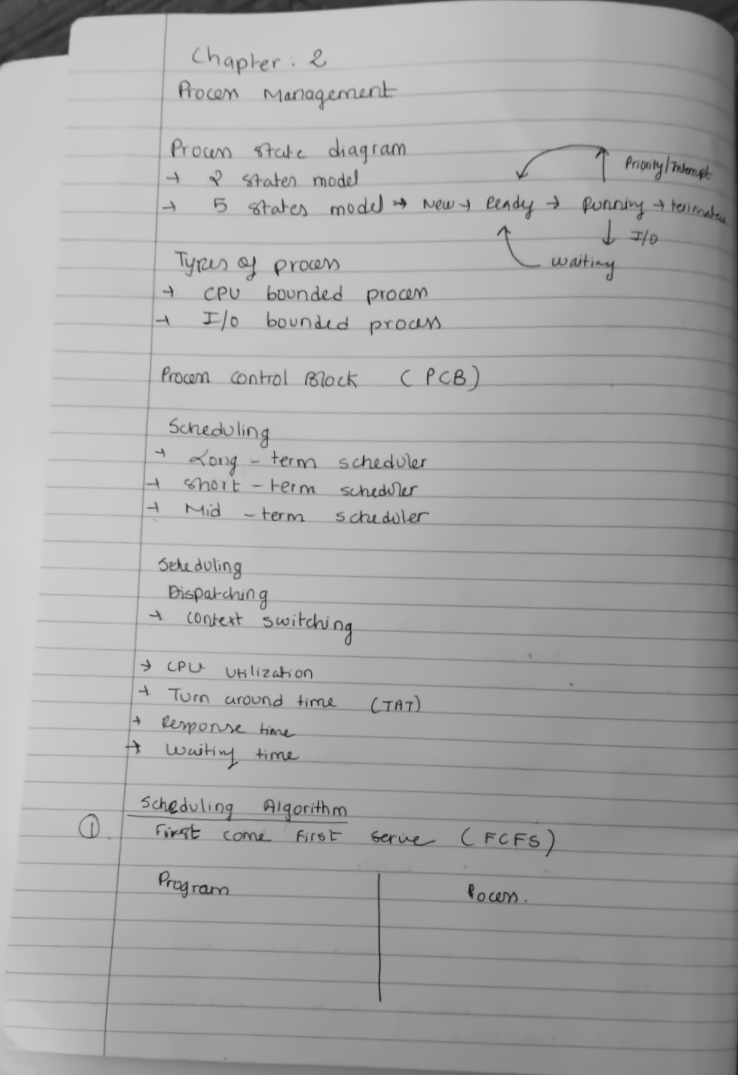 Chapter : 2
Process Management
Process state diagram
→ 2 states model
Priority/Interrupt
→ 5 states model → New → Ready → Running → terminates
↓ I/O
waiting
Types of process
→ CPU bounded process
→ I/O bounded process
Process control Block (PCB)
Scheduling
→ Long - term scheduler
→ short - term scheduler
→ Mid - term scheduler
Scheduling
Dispatching
→ context switching
→ CPU utilization
→ Turn around time (TAT)
→ Response time
→ waiting time
Scheduling Algorithm
① First come First serve (FCFS)
Program Pocess.